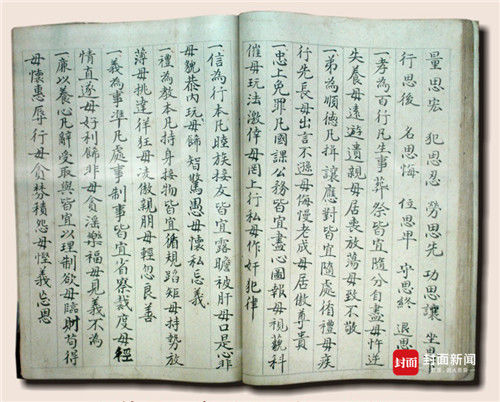 量思宏 犯思忍 勞思先 功思讓 坐思
行思後 名思悔 位思卑 守思終 退思
一孝為百行凡生事葬祭皆宜隨分自盡毋忤逆
失養毋遠遊遺親毋居喪放蕩毋致不敬
一弟為順德凡揖讓應對皆宜隨處侑禮毋疾
行先長毋出言不遜毋侮慢老成毋居傲尊貴
一忠上免罪凡國課公務皆宜盡心圖報毋視藐科
催毋玩法激倖毋罔上行私毋作奸犯律
一信為行本凡睦族接友皆宜露瞻被肝毋口是心非
毋貌恭內玩毋飾智驚愚毋懷私忘義
一禮為教本凡持身接物皆宜循規蹈矩毋持勢放
薄毋挑達徉狂毋凌傲親朋毋輕忽良善
一義為事準凡處事制事皆宜省察裁度毋經
情直遂毋好利飾非毋貪淫樂福毋見義不為
一廉以養心凡辭受取與皆宜以理制欲毋臨財苟得
毋懷惠辱行毋貪婪積怨毋慳義忘恩
封面 封面新闻